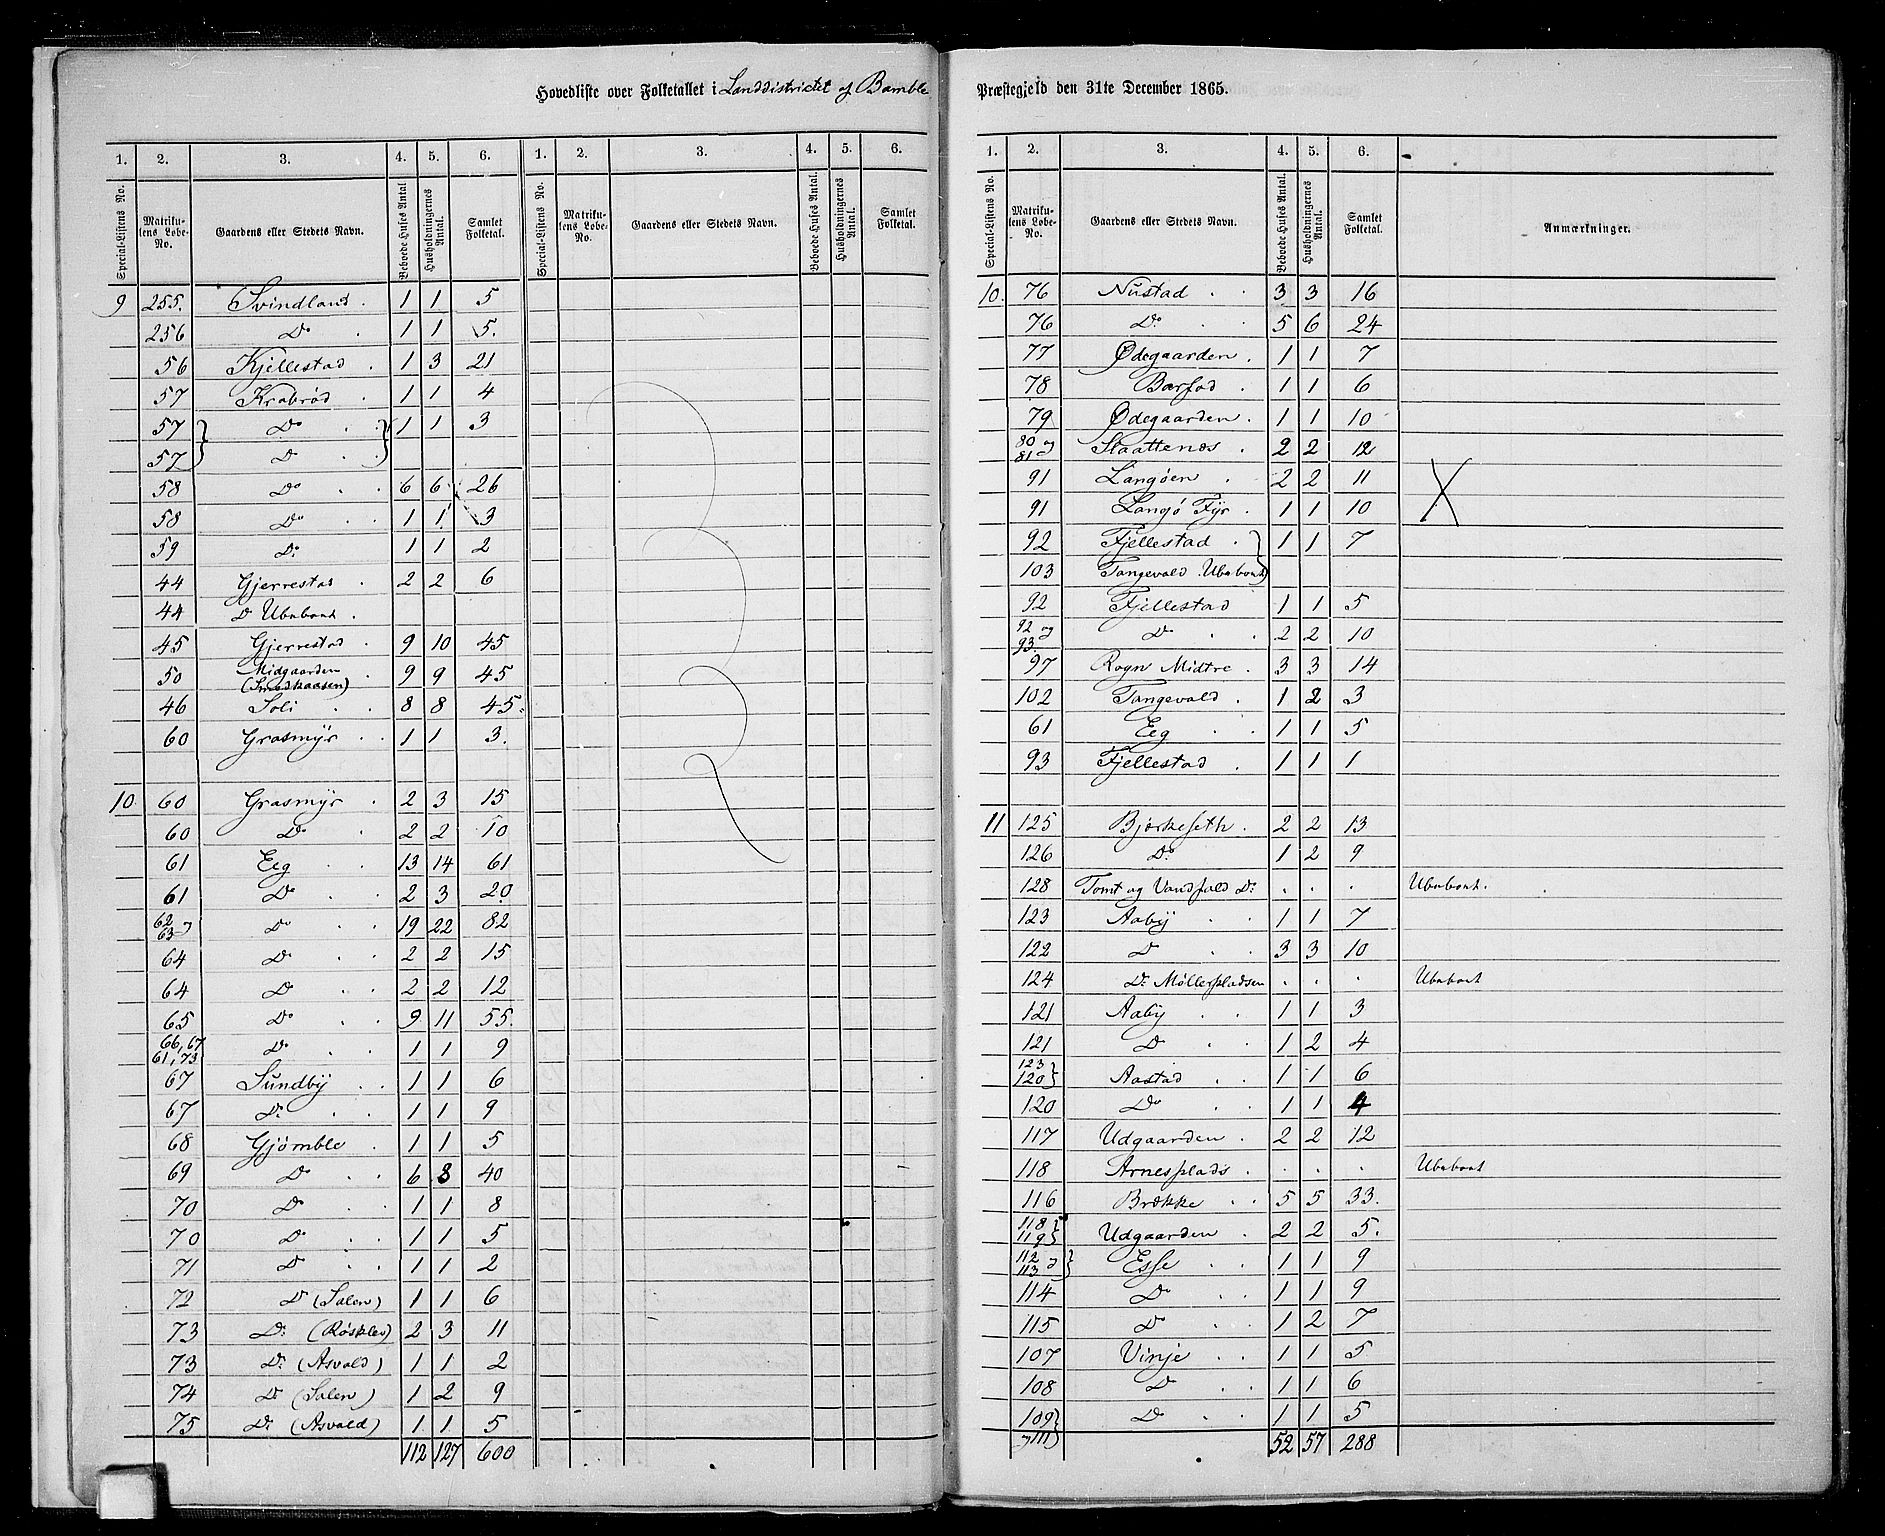 Hovedliste over Folketallet i Landdistrictet af Bamble
1. 2. 3. 4. 5. 6. 1. 2. 3. 4. 5. 6.
Special-Listens No. Matrikulens Løbe-No. Gaardens eller Stedets Navn. Beboede Huses Antal Husholdningernes Antal. Samlet Folketal. Special-Listens No. Matrikulens Løbe-No. Gaardens eller Stedets Navn. Beboede Huses Antal. Husholdningernes Antal. Samlet Folketal.
9 255. Svindland . 1 1 5
256 Do . 1 1 5.
56 Kjellestad . 1 3 21
57 Krabrød . 1 1 4
57 } Do . . } 1 1 3
57 } Do . . }
58 Do . . 6 6 26
58 Do . . 1 1 3
59 Do . 1 1 2
44 Gjerrestad . 2 2 6
44 Do Ubeboet .
45 Gjerrestad . 9 10 45
50 Midgaarden (Smedhaasen) . 9 9 45
46 Soli . . 8 8 45.
60 Grasmyr . . 1 1 3.
10 60 Grasmyr . 2 3 15
60 Do . 2 2 10
61 Eeg . . 13 14 61
61 Do . . 2 3 20
62 og 63 Do . . 19 22 82
64 Do . . 2 2 15
64 Do . . 2 2 12
65 Do . . 9 11 55.
66, 67 61, 73 Do . . 1 1 9
67 Sundby . . 1 1 6
67 Do . . 1 1 9
68 Gjømble . 1 1 5
69 Do . . 6 8 40
70 Do . . 1 1 8
70 Do . . 1 1 5
71 Do . . 1 1 2
72 Do (Salen) 1 1 6
73 Do (Røsklev) 2 3 11
73 Do (Asvald) 1 1 2
74 Do (Salen) 1 2 9
75 Do (Asvald) 1 1 5
112 127 600
Præstegjeld den 31te December 1865.
1. 2. 3. 4. 5. 6.
Special-Listens No. Matrikulens Løbe-No. Gaardens eller Stedets Navn. Beboede Huses Antal. Husholdningernes Antal. Samlet Folketal. Anmærkninger.
10. 76 Nustad . . 3 3 16
76 Do . . 5 6 24
77 Ødegaarden . 1 1 7
78 Barfod . 1 1 6
79 Ødegaarden . 1 1 10
80 og 81 Slaattenæs . 2 2 12
91 Langøen . 2 2 11
91 Langø Fyr . 1 1 10
92 Fjellestad . } 1 1 7
103 Tangevald Ubeboet }
92 Fjellestad 1 1 5
92 og 93 Do . . 2 2 10
97 Rogn Midtre . 3 3 14
102 Tangevald . 1 2 3
61 Eeg . . 1 1 5
93 Fjellestad . 1 1 1
11 125 Bjørkeseth . 2 2 13
126 Do . 1 2 9
128 Tomt og Vandfald Do . . . Ubeboet.
123 Aaby . . 1 1 7
122 Do . . 3 3 10
124 Do Møllerpladsen . . . Ubeboet
121 Aaby . . 1 1 3
121 Do . . 1 2 4
123 120 } Aastad . . 1 1 6
120 Do . . 1 1 4
117 Udgaarden . 2 2 12
118 Arnesplads . . . . Ubeboet
116 Brække . . 5 5 33.
118 119 } Udgaarden . 2 2 5.
112 og 113 } Esse . . 1 1 9
114 Do . . 1 1 9
115 Do . . 1 2 7
107 Vinje . . 1 1 5
108 Do . . 1 1 6
109 og 111 } Do . . 1 1 5
52 57 288